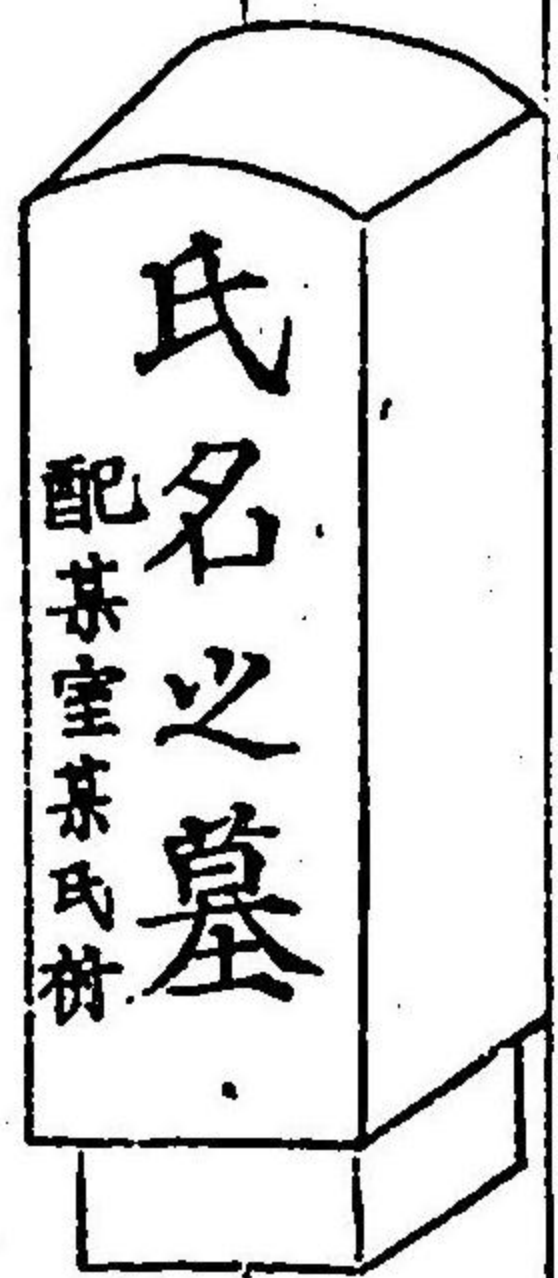 氏名之墓
配某室某氏祔